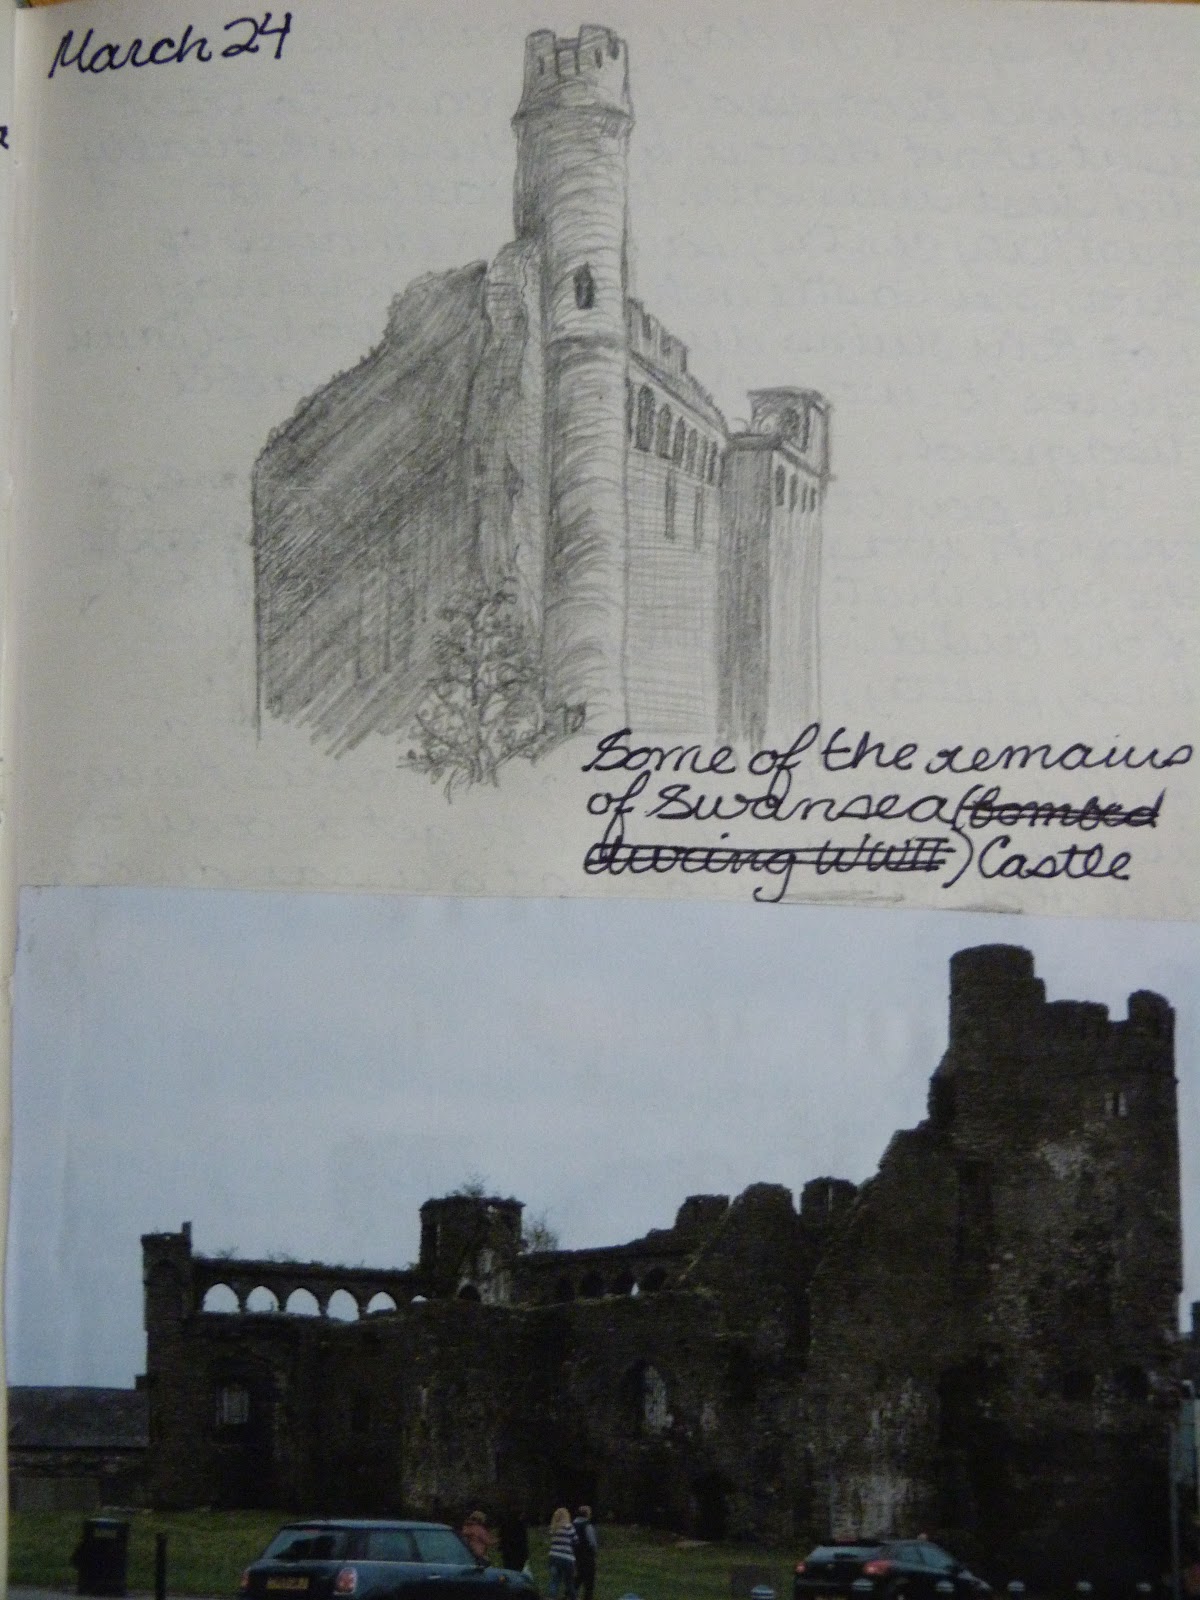 March 24
Some of the remains
of Swansea (bombed
during WWII) Castle